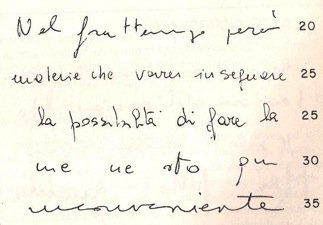 Nel frattempo però 20
materie che vorrei insegnare 25
la possibilità di fare la 25
me ne sto qui 30
inconveniente 35